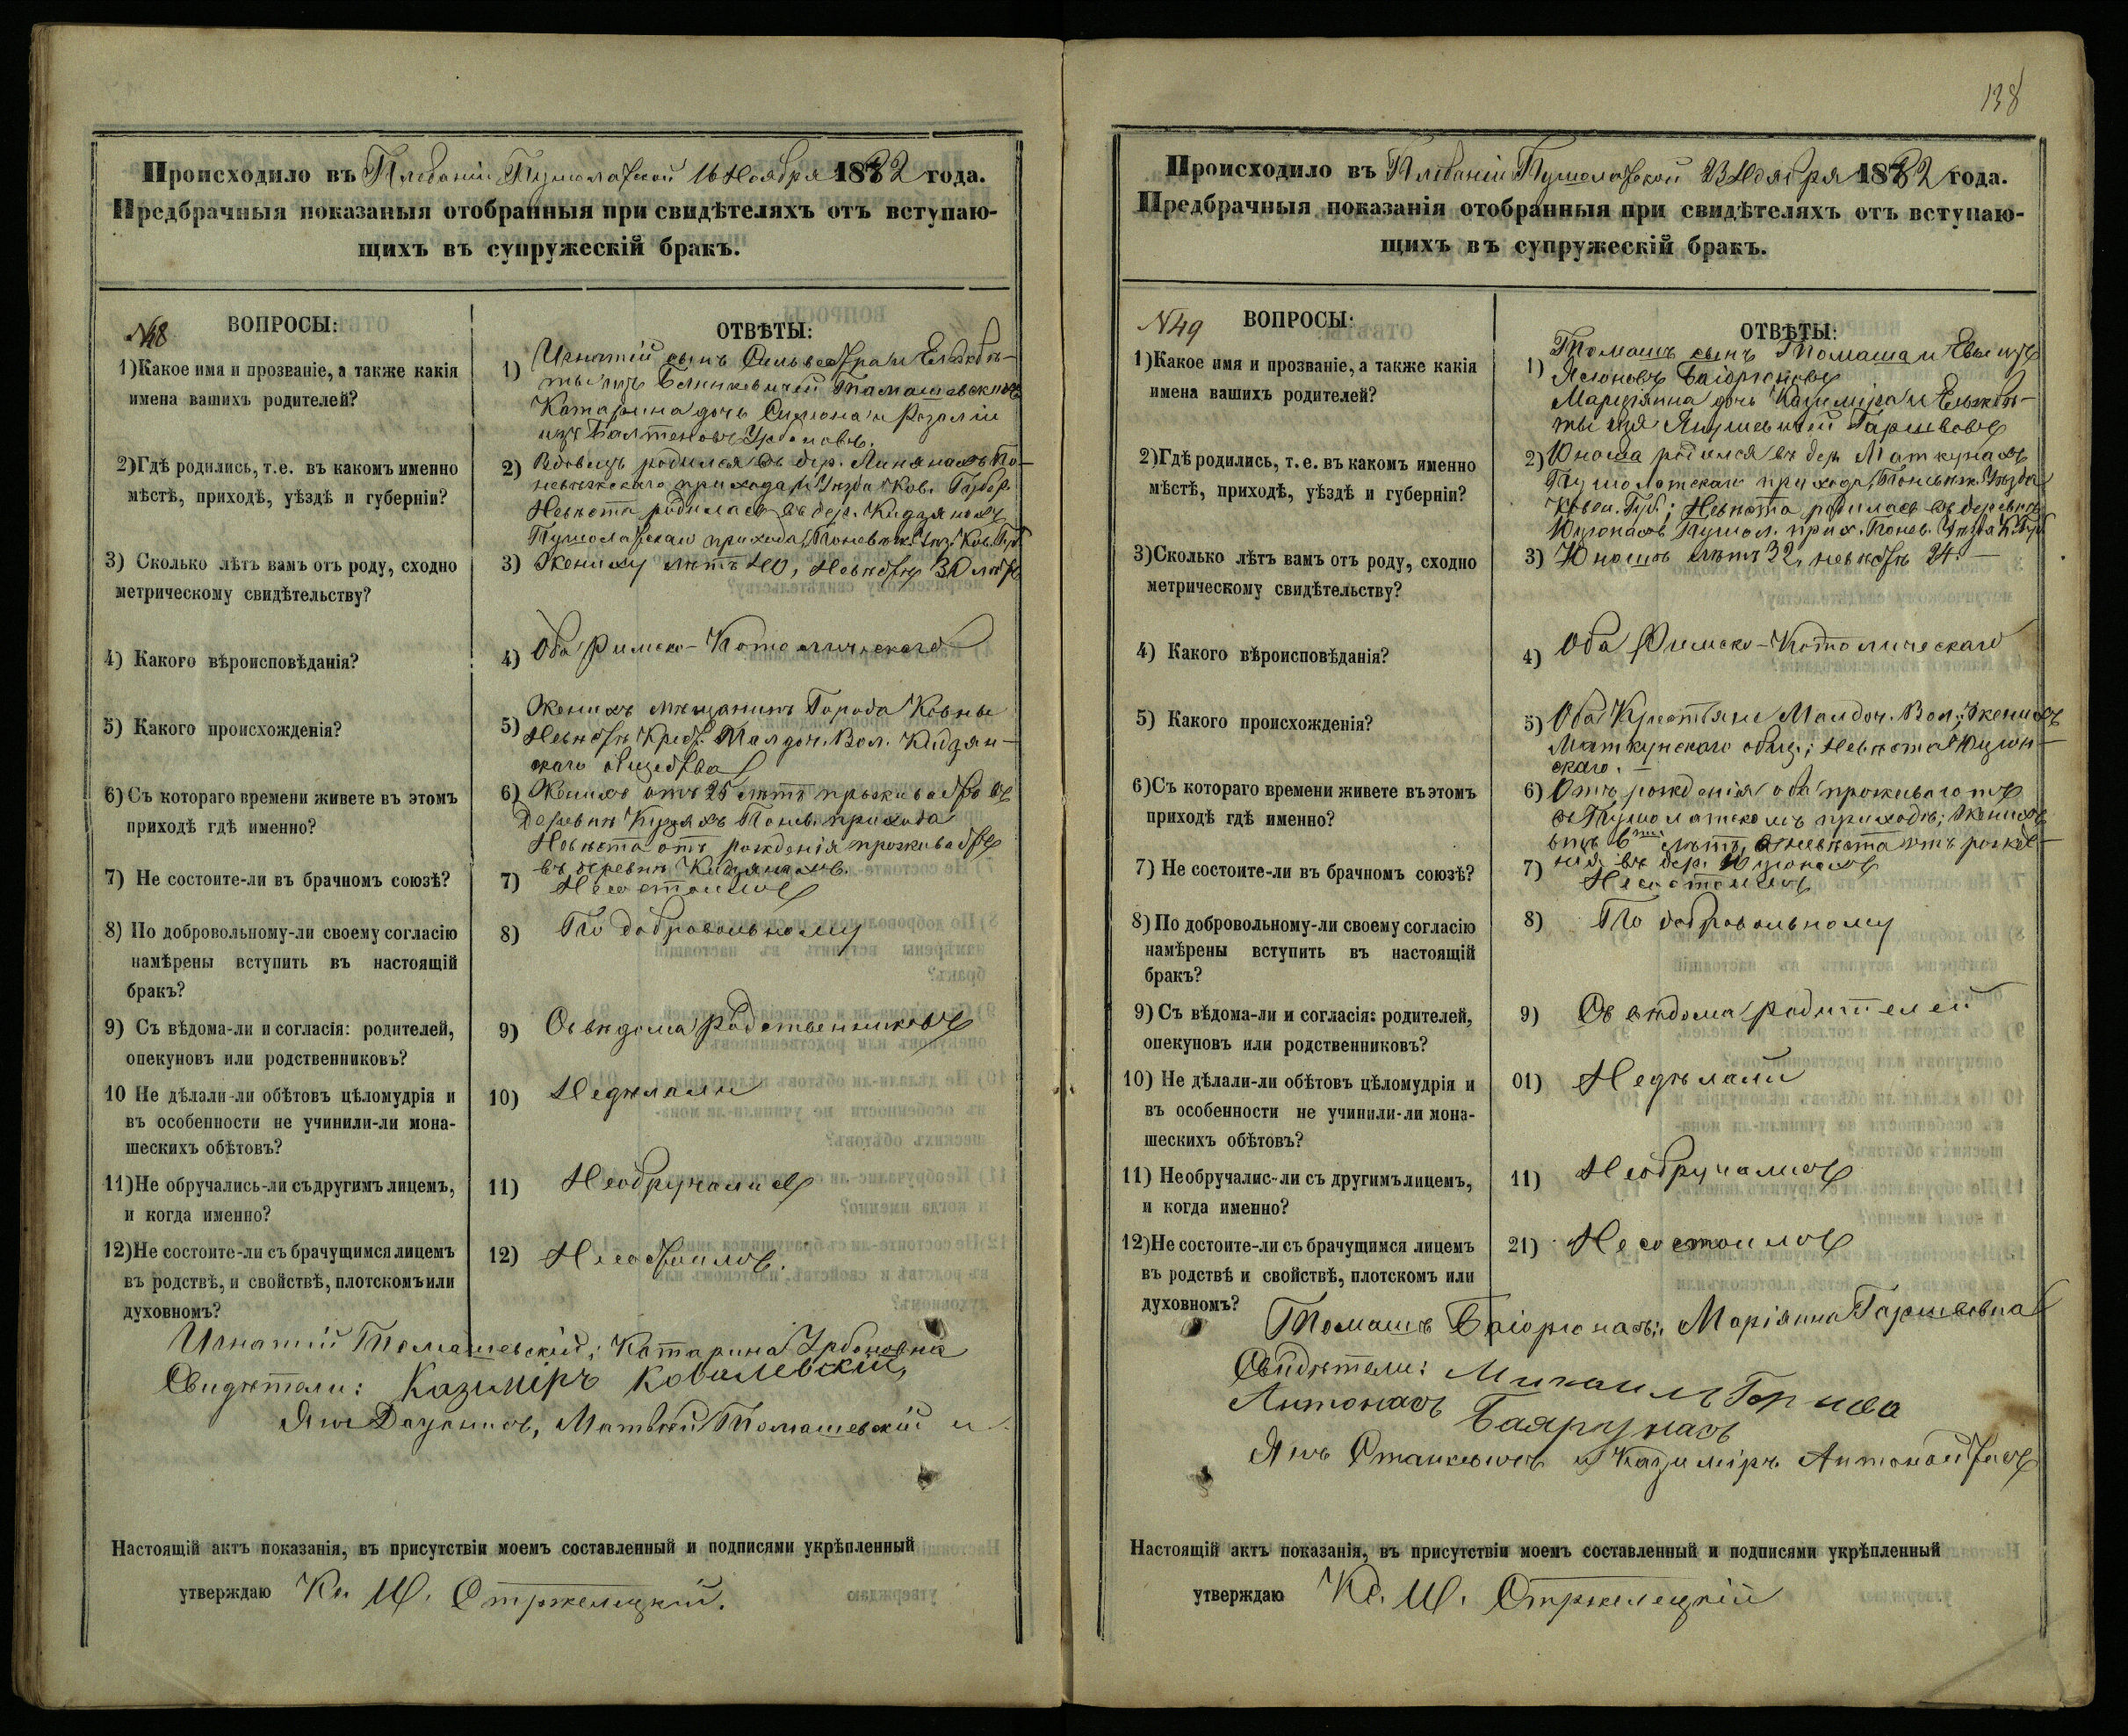 Происходило въ Плебаніи Пушолатской 16 Ноября 1882 года.
Предбрачныя показаныя отобранныя при свидѣтеляхъ отъ вступаю-
щихъ въ супружескій бракъ.
№48
ВОПРОСЫ:
1) Какое имя и прозваніе, а также какія
имена вашихъ родителей?
2) Гдѣ родились, т.е. въ какомъ именно
мѣстѣ, приходѣ, уѣздѣ и губерніи?
3) Сколько лѣтъ вамъ отъ роду, сходно
метрическому свидѣтельству?
4) Какого вѣроисповѣданія?
5) Какого происхожденія?
6) Съ котораго времени живете въ этомъ
приходѣ гдѣ именно?
7) Не состоите-ли въ брачномъ союзѣ?
8) По добровольному-ли своему согласію
намѣрены вступить въ настоящій
бракъ?
9) Съ вѣдома-ли и согласія: родителей,
опекуновъ или родственниковъ?
10 Не дѣлали-ли обѣтовъ цѣломудрія и
въ особенности не учинили-ли мона-
шескихъ обѣтовъ?
11) Не обручались-ли съ другимъ лицемъ,
и когда именно?
12) Не состоите-ли съ брачущимся лицемъ
въ родствѣ, и свойствѣ, плотскомъ или
духовномъ?
ОТВѢТЫ:
1) Игнатій сынъ Сильвестра и Елжбѣ-
ты изъ Томашевскихъ
Катарина дочь Симона и Розаліи
изъ Балтеновъ Урбоновъ.
2) Вдовецъ родился въ дер. Линянахъ По-
невѣжскаго прихода и Уѣзда Ков. Губер.
Невѣста родилась въ дер. Кидзянахъ
Пушолатскаго прихода, Поневѣж. Уѣз. Ков. Губ.
3) Жениху лѣтъ 40, Невѣстѣ 30 лѣтъ
4) Оба Римско-Католическаго
5) Женихъ мѣщанинъ Города Ковны
Невѣста Крест. Малдон. Вол. Кидзян-
скаго общества
6) Женихъ отъ 25 лѣтъ проживаетъ въ
Деревнѣ Понев. прихода
Невѣста отъ рожденія проживаетъ
въ деревнѣ Кидзянахъ.
7) Не состоимъ
8) По добровольному
9) Съ вѣдома родственниковъ
10) Не дѣлали
11) Не обручались
12) Не состоимъ.
Игнатій Томашевскій; Катарина Урбоновна
Свидѣтели: Казиміръ Ковалевскій,
Янъ Матвѣй Томашевскій и
Настоящій актъ показанія, въ присутствіи моемъ составленный и подписями укрѣпленный
утверждаю Кс. Ш. Стржелецкій.
138
Происходило въ Плебаніи Пушолатской 23 Ноября 1882 года.
Предбрачныя показанія отобранныя при свидѣтеляхъ отъ вступаю-
щихъ въ супружескій бракъ.
№49
ВОПРОСЫ:
1) Какое имя и прозваніе, а также какія
имена вашихъ родителей?
2) Гдѣ родились, т. е. въ какомъ именно
мѣстѣ, приходѣ, уѣздѣ и губерніи?
3) Сколько лѣтъ вамъ отъ роду, сходно
метрическому свидѣтельству?
4) Какого вѣроисповѣданія?
5) Какого происхожденія?
6) Съ котораго времени живете въ этомъ
приходѣ гдѣ именно?
7) Не состоите-ли въ брачномъ союзѣ?
8) По добровольному-ли своему согласію
намѣрены вступить въ настоящій
бракъ?
9) Съ вѣдома-ли и согласія: родителей,
опекуновъ или родственниковъ?
10) Не дѣлали-ли обѣтовъ цѣломудрія и
въ особенности не учинили-ли мона-
шескихъ обѣтовъ?
11) Необручалис-ли съ другимъ лицемъ,
и когда именно?
12) Не состоите-ли съ брачущимся лицемъ
въ родствѣ и свойствѣ, плотскомъ или
духовномъ?
ОТВѢТЫ:
1) Томашъ сынъ Томаша и Евы изъ
Баіорюновъ
Маріянна дочь Казиміра и Ельжбѣ-
ты изъ Янушевичей Гаршвовъ
2) Юноша родился въ дер. Маткунахъ
Пушолатскаго прихода, Поневѣж. Уѣзда
Ковен. Губ.; Невѣста родилась въ деревнѣ
Пушол. прих. Понев. Уѣзда К. Губ
3) Юношѣ лѣтъ 32, невѣстѣ 24.
4) Оба Римско-Католическаго
5) Оба Крестьяне Малдон. Вол.; женихъ
Маткунскаго общ.; невѣста
скаго.
6) Отъ рожденія оба проживаютъ
въ Пушолатскомъ приходѣ; женихъ
6 лѣтъ, а невѣста отъ рожде-
нія въ дер.
7) Не состоимъ
8) По добровольному
9) Съ вѣдома родителей
01) Не дѣлали
11) Не обручались
21) Не состоимъ
Томашъ Баіорюнасъ; Маріянна Гаршвовна
Свидѣтели: Михаилъ Гаршва
Антонасъ Баярунасъ
Янъ Станкевичъ и Казиміръ
Настоящій актъ показанія, въ присутствіи моемъ составленный и подписями укрѣпленный
утверждаю Кс. Ш. Стржелецкій